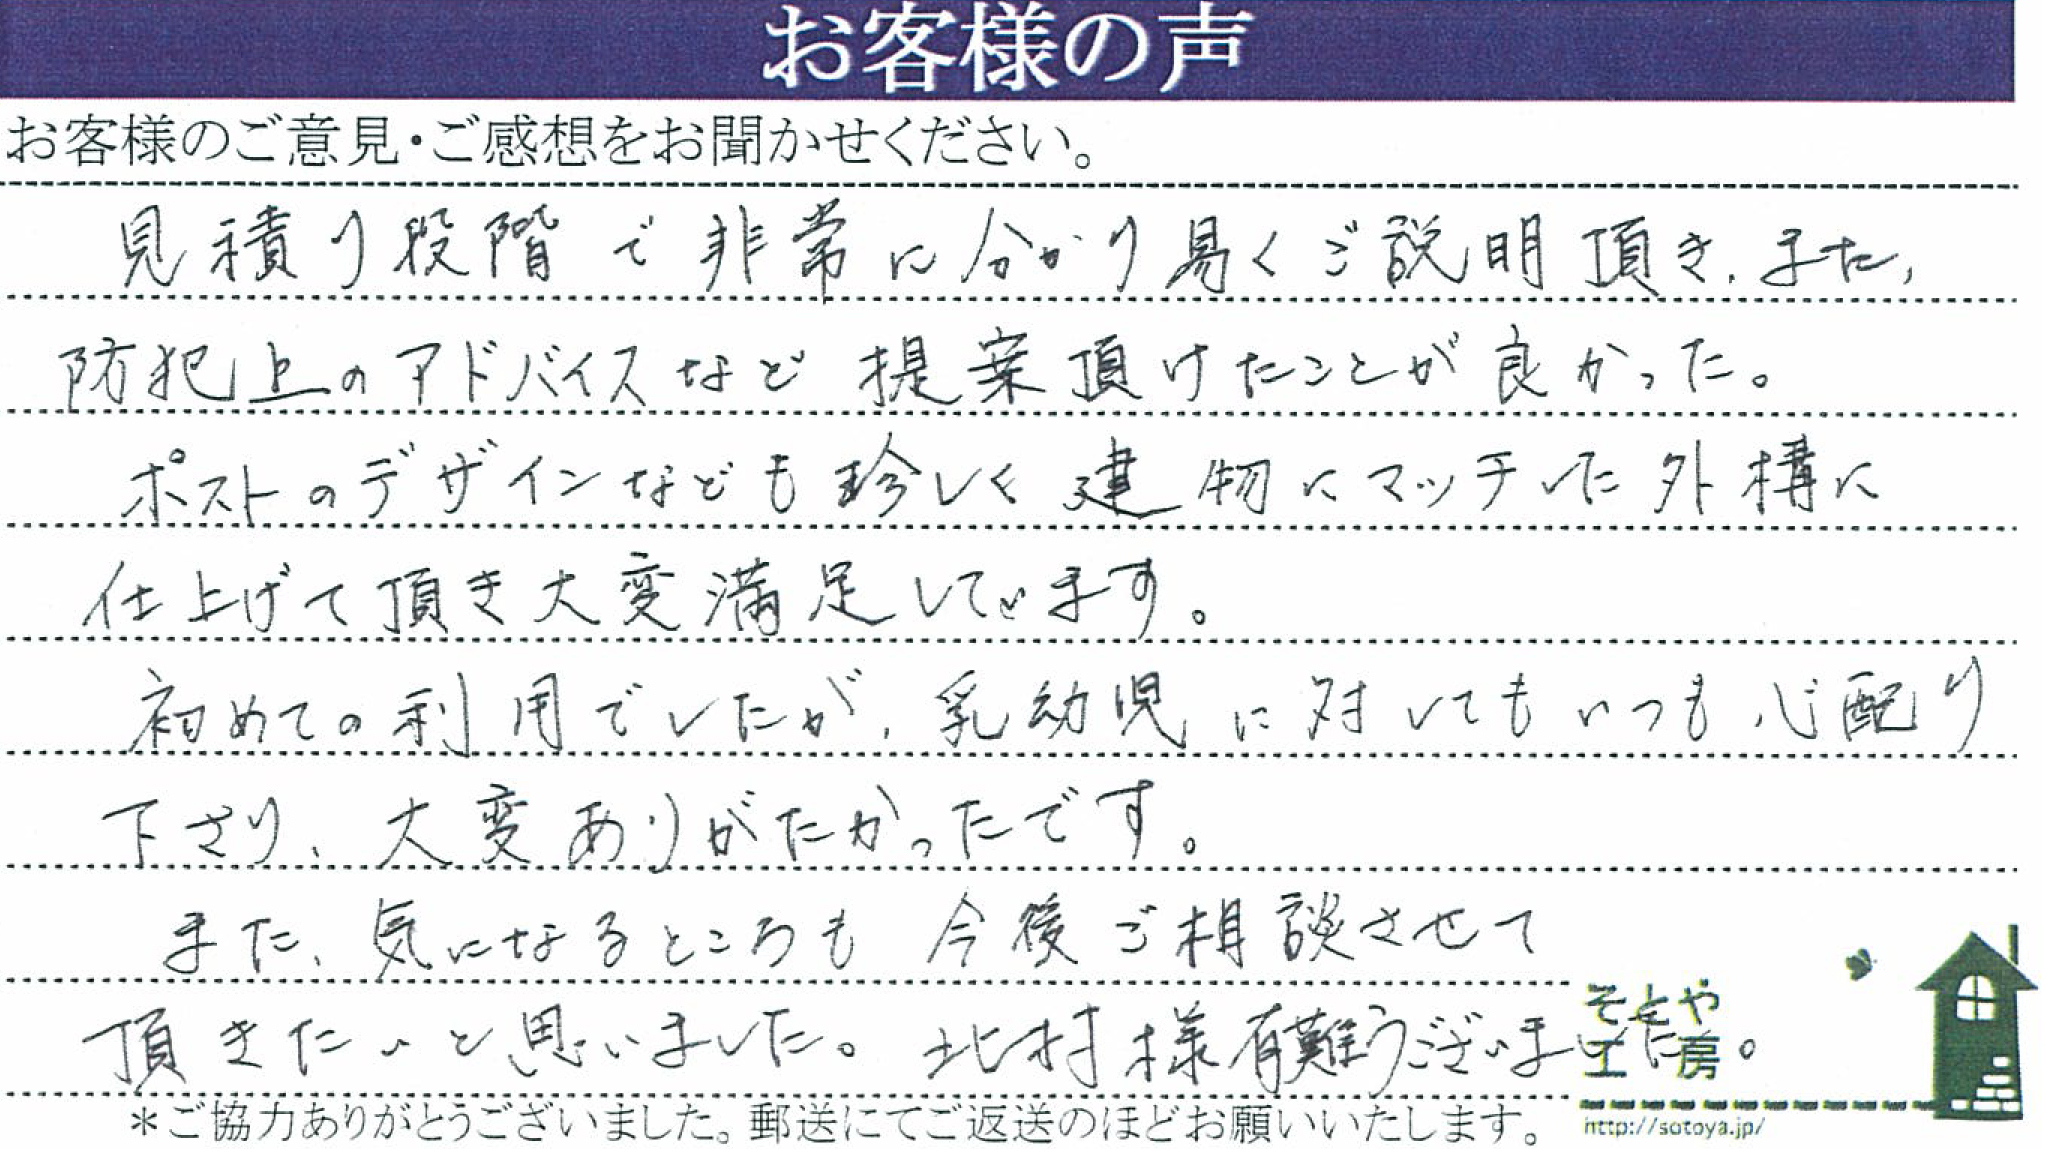 お客様の声
お客様のご意見・ご感想をお聞かせください。
見積り段階で非常に分かり易くご説明頂き、また、
防犯上のアドバイスなど提案頂けたことが良かった。
ポストのデザインなども珍しく建物にマッチした外構に
仕上げて頂き大変満足しています。
初めての利用でしたが、乳幼児に対してもいつも心配り
下さり、大変ありがたかったです。
また、気になるところも今後ご相談させて
頂きたいと思いました。北村様有難うございました。
そとや
工房
＊ご協力ありがとうございました。郵送にてご返送のほどお願いいたします。
http://sotoya.jp/